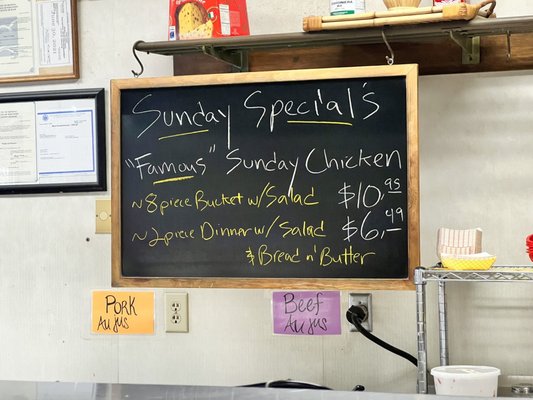 Sunday Special's
"Famous" Sunday Chicken
~8piece Bucket w/Salad $10.95
~2piece Dinner w/Salad $6.49
& Bread n' Butter
Pork
Au jus
Beef
Au jus